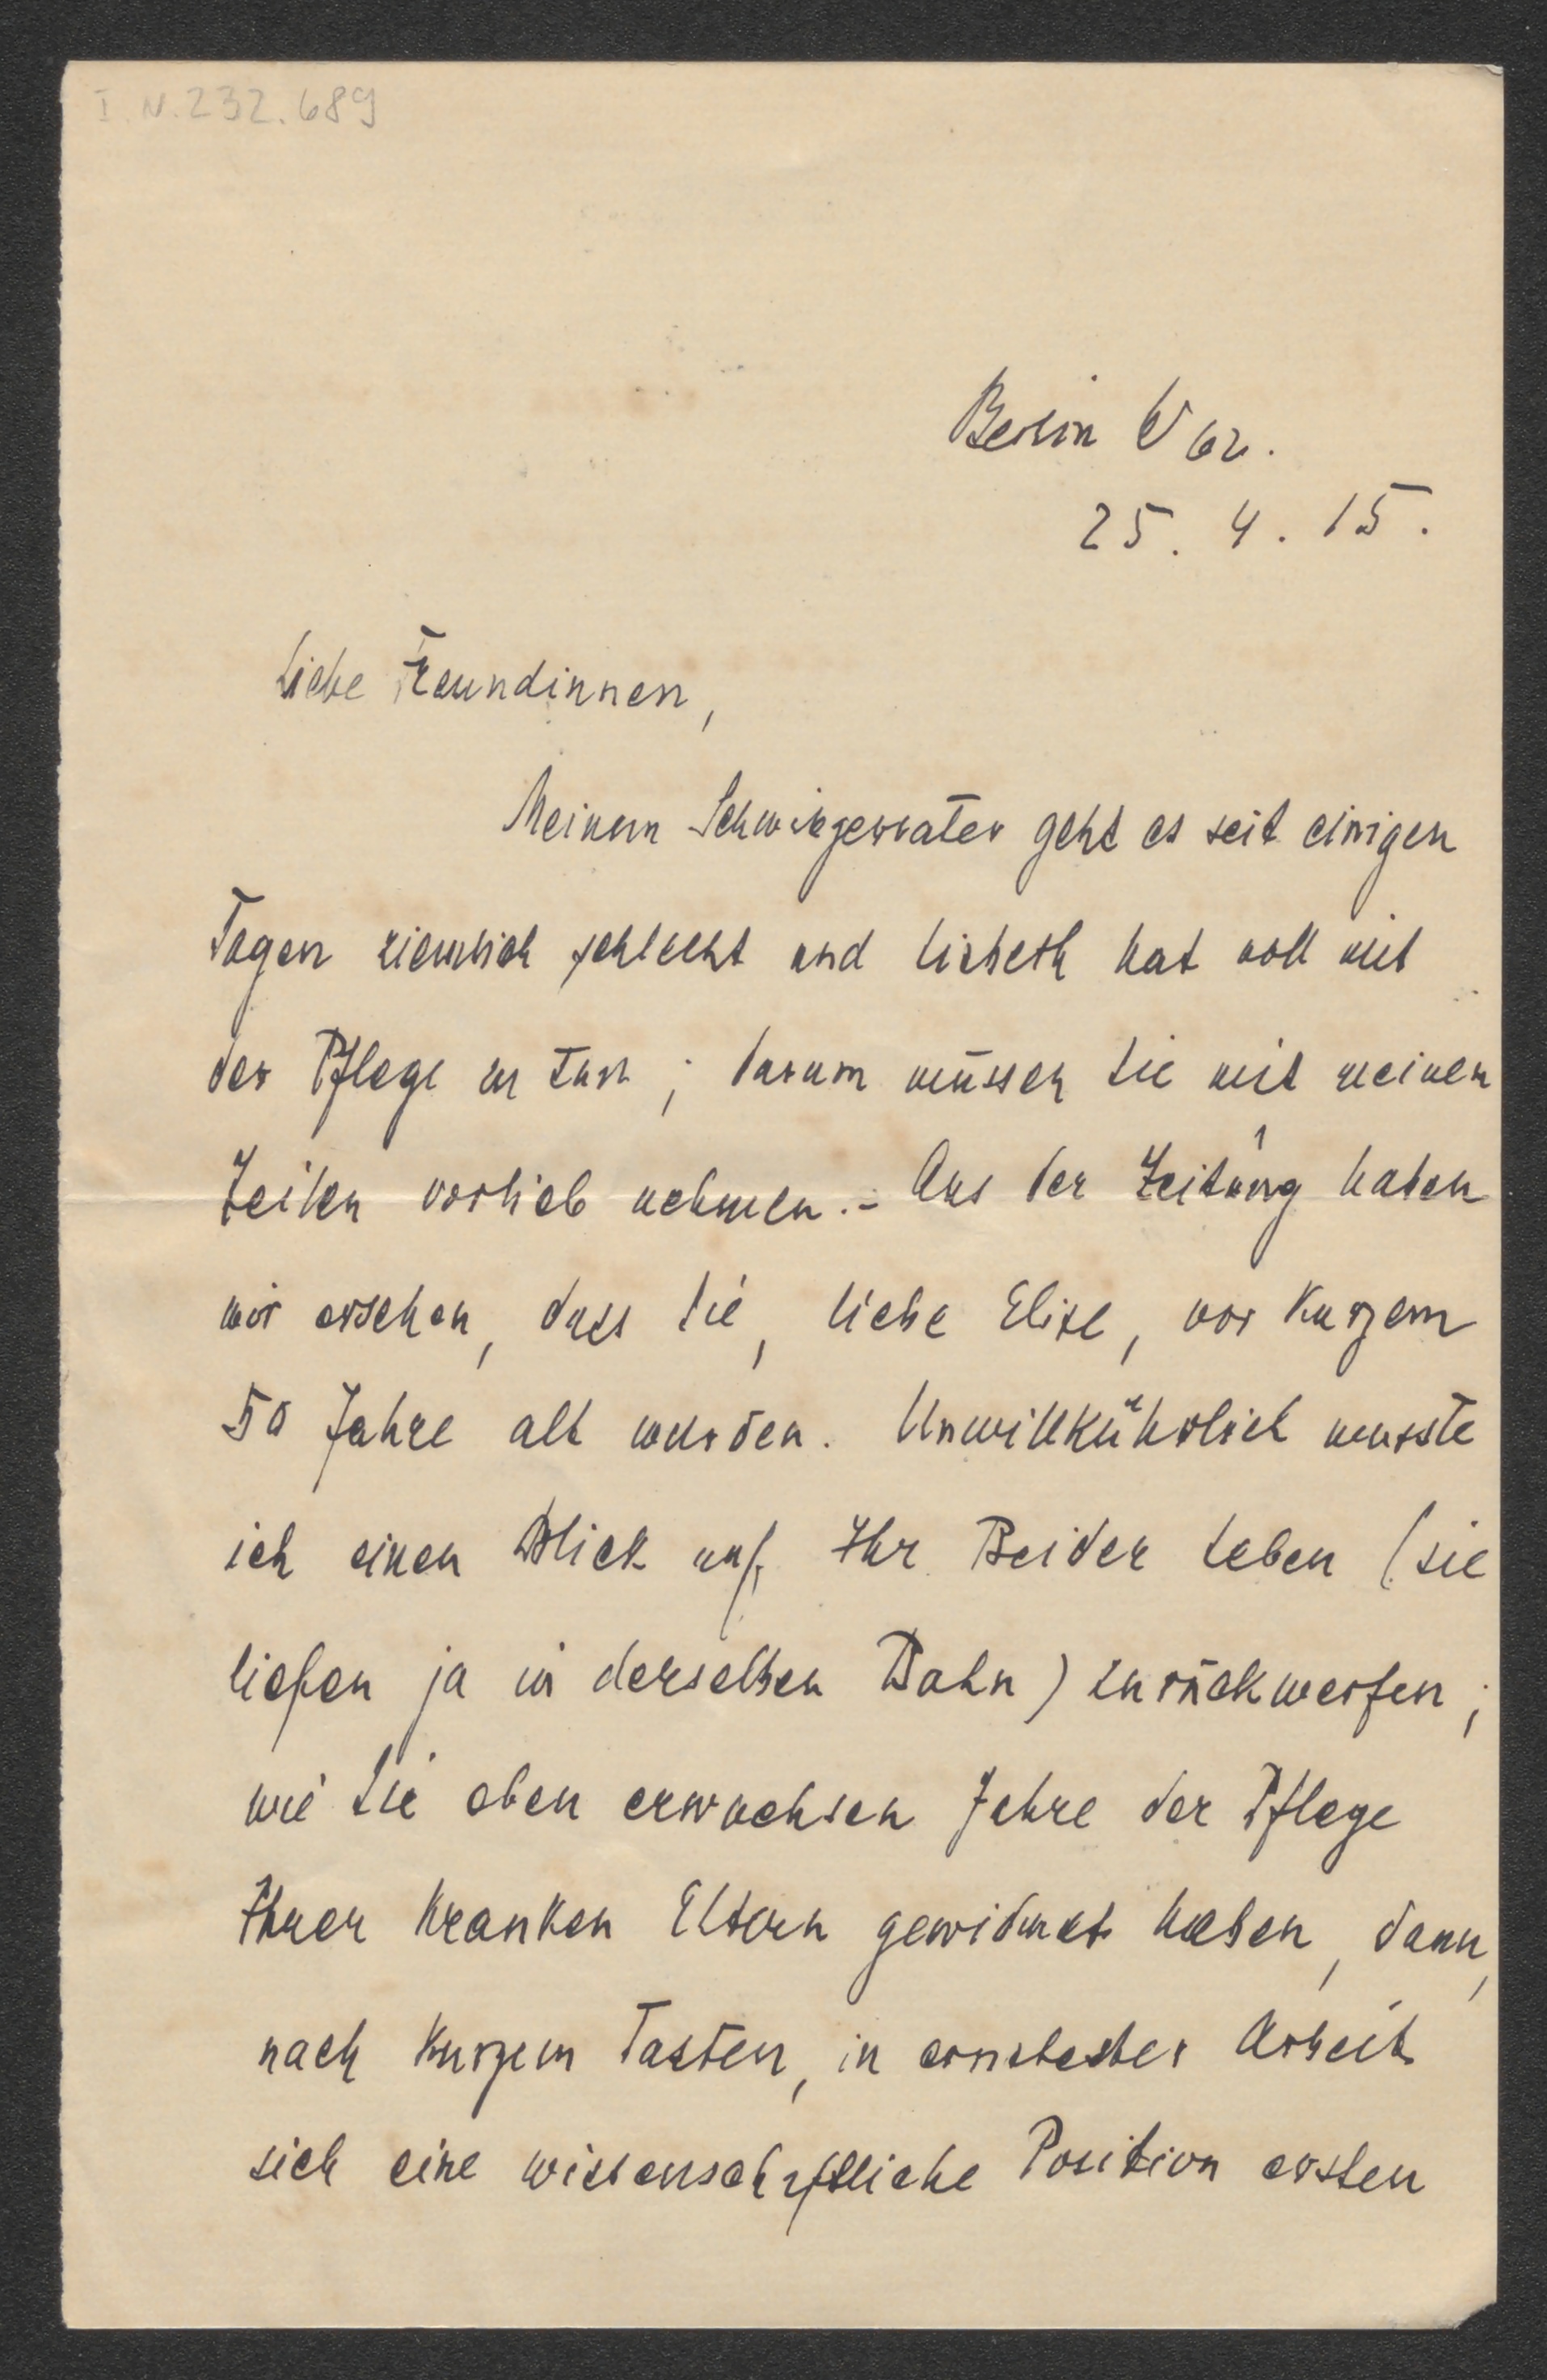 I. N. 232.689
Berlin W 62.
25. 4. 15.
Liebe Freundinnen,
Meinem Schwiegervater geht es seit einigen
Tagen ziemlich schlecht und Lisbeth hat voll mit
der Pflege zu tun; darum müssen Sie mit meinen
Zeilen vorlieb nehmen. – Aus der Zeitung haben
wir ersehen, dass Sie, liebe Elise, vor Kurzem
50 Jahre alt wurden. Unwillkührlich musste
ich einen Blick auf Ihr Beider Leben (sie
liefen ja in derselben Bahn) zurückwerfen;
wie Sie eben erwachsen Jahre der Pflege
Ihrer kranken Eltern gewidmet haben, dann,
nach kurzem Tasten, in ernstester Arbeit
sich eine wissenschaftliche Position ersten